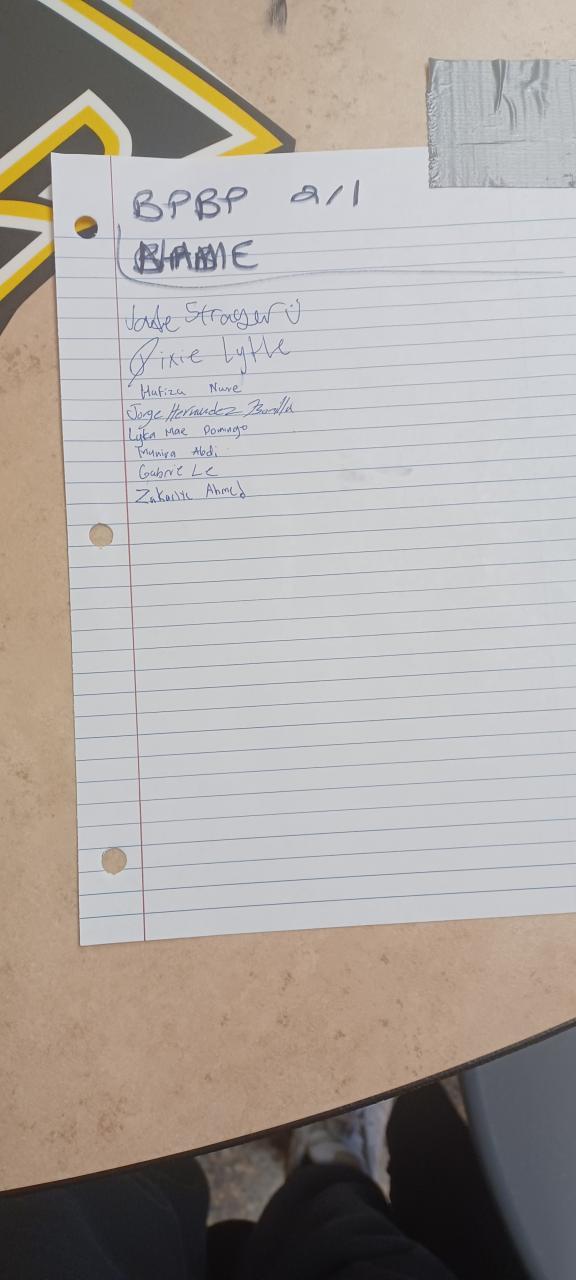 BPBP 2/1
NAME
Jade Strayer :)
Pixie Lytle
Hafiza Nure
Jorge Hernandez Bonilla
Lyka Mae Domingo
Munira Abdi
Gabrie Le
Zakariye Ahmed